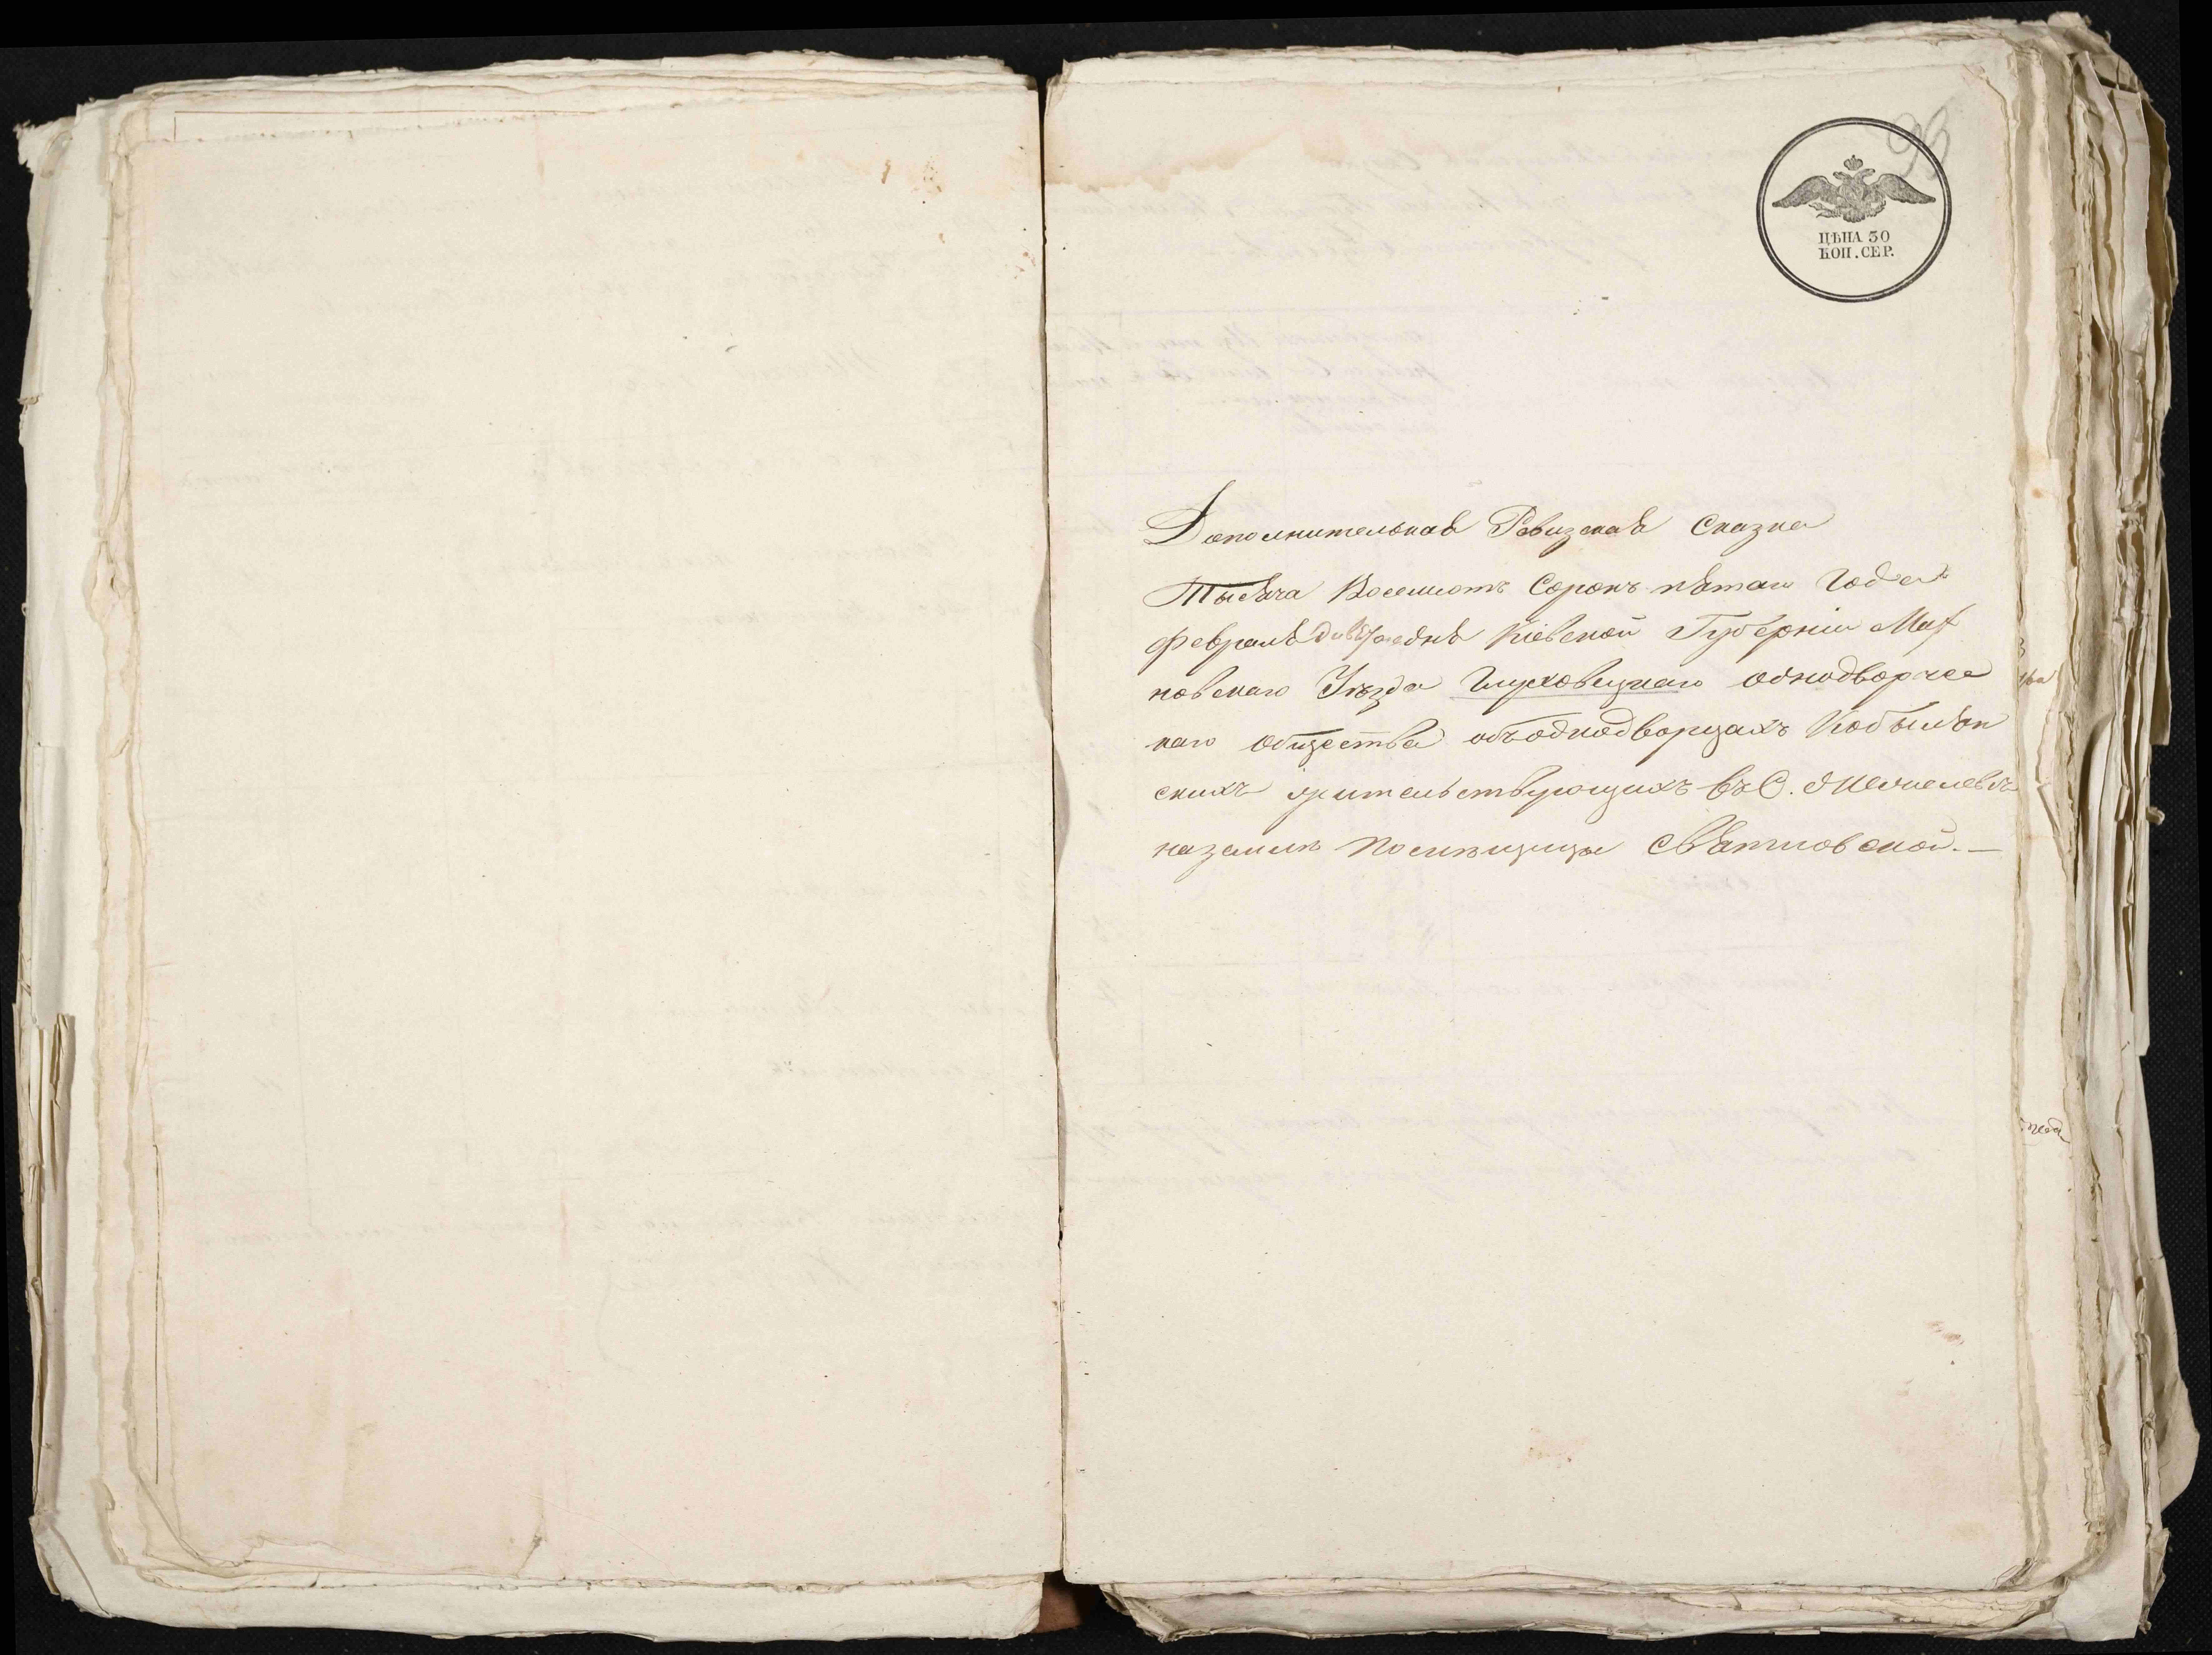 93
ЦѢНА 30
КОП. СЕР.
Дополнительная Ревизская Сказка
Тысяча Восемсотъ Сорокъ пятаго Года
Февраля дня Кіевской Губерніи Мах
новскаго Уѣзда Глуховецкаго Однодворчес
каго Общества объоднодворцахъ Кобылян
скихъ жительствующихъ въ С.
наземлѣ Помѣщицы